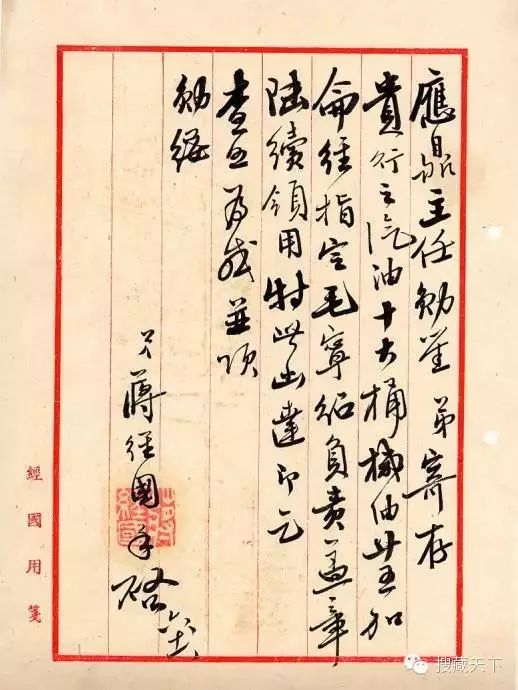 應昌主任勛鑒弟寄存
貴行之汽油十大桶機油廿五加
侖經指定毛寧紹負責蓋章
陸續領用特此函達即乞
查照為感並頌
勛綏
弟蔣經國手啟
經國用箋
搜藏天下